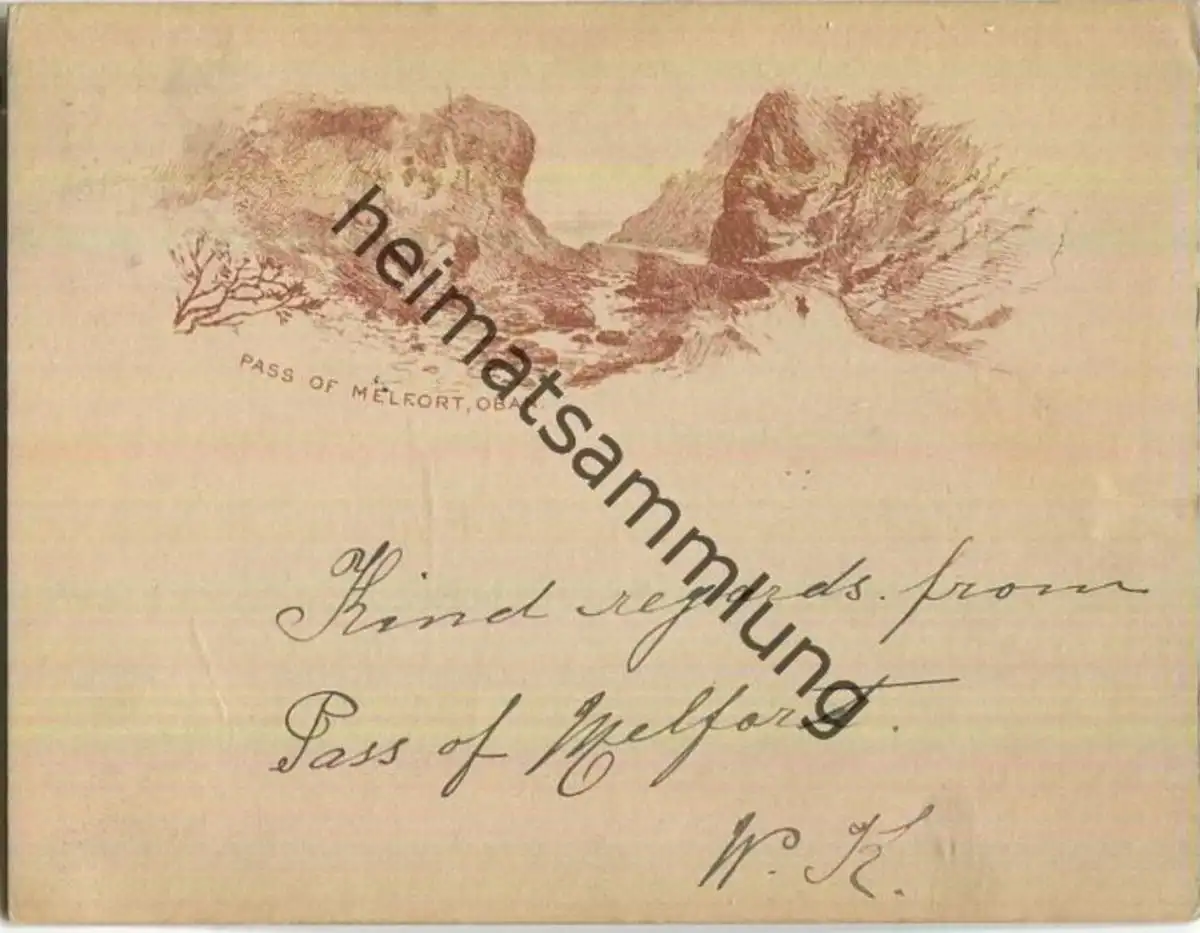 PASS OF MELFORT, OBAN.
heimatsammlung
Kind regards. from
Pass of Melfort.
W. K.